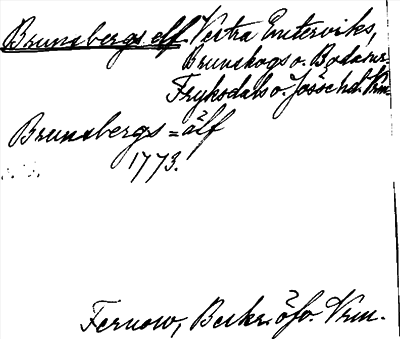 Brunsbergs elf. Västra Emterviks,
Brunskogs o. Boda snr
Fryksdals o. Jösse hd. Vrm
Brunsbergs=älf
1773.
Fernow, Beskr. öfv. Vrm.